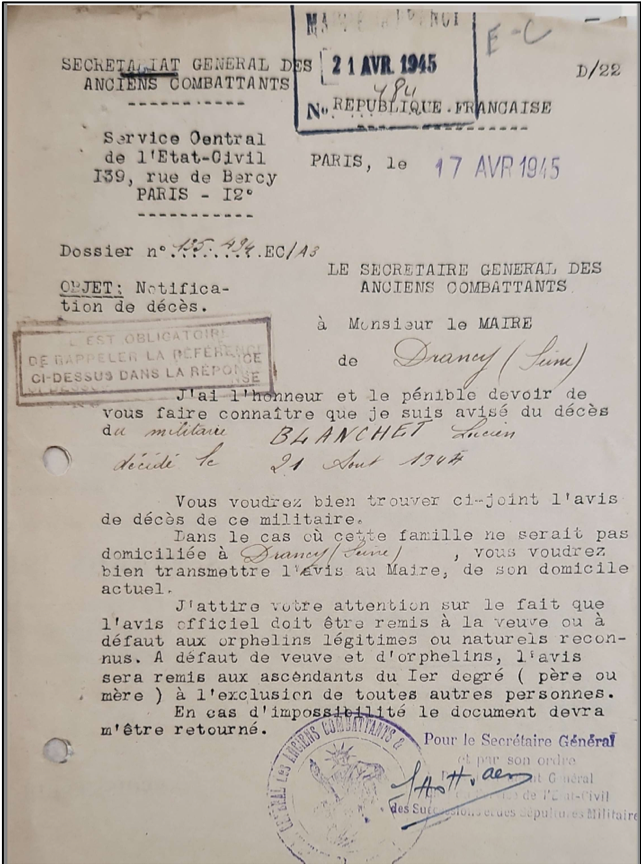 21 AVR. 1945
484
E-C
SECRETALIAT GENERAL DES
ANCIENS COMBATTANTS
D/22
N° REPUBLIQUE FRANCAISE
Service Central
de l'Etat-Civil
I39, rue de Bercy
PARIS - I2°
PARIS, le 17 AVR 1945
Dossier n° 135.494.EC/A3
OBJET: Notifica-
tion de décès.
LE SECRETAIRE GENERAL DES
ANCIENS COMBATTANTS
à Monsieur le MAIRE
de Drancy (Seine)
IL EST OBLIGATOIRE
DE RAPPELER LA RÉFÉRENCE
CI-DESSUS DANS LA RÉPONSE
J'ai l'honneur et le pénible devoir de
vous faire connaître que je suis avisé du décès
du militaire BLANCHET Lucien
décédé le 21 Aout 1944
Vous voudrez bien trouver ci-joint l'avis
de décès de ce militaire.
Dans le cas où cette famille ne serait pas
domiciliée à Drancy (Seine) , vous voudrez
bien transmettre l'avis au Maire, de son domicile
actuel.
J'attire votre attention sur le fait que
l'avis officiel doit être remis à la veuve ou à
défaut aux orphelins légitimes ou naturels recon-
nus. A défaut de veuve et d'orphelins, l'avis
sera remis aux ascendants du Ier degré ( père ou
mère ) à l'exclusion de toutes autres personnes.
En cas d'impossibilité le document devra
m'être retourné.
Pour le Secrétaire Général
et par son ordre
Général
de l'Etat-Civil
des Successions et des Sépultures Militaires
ANCIENS COMBATTANTS &